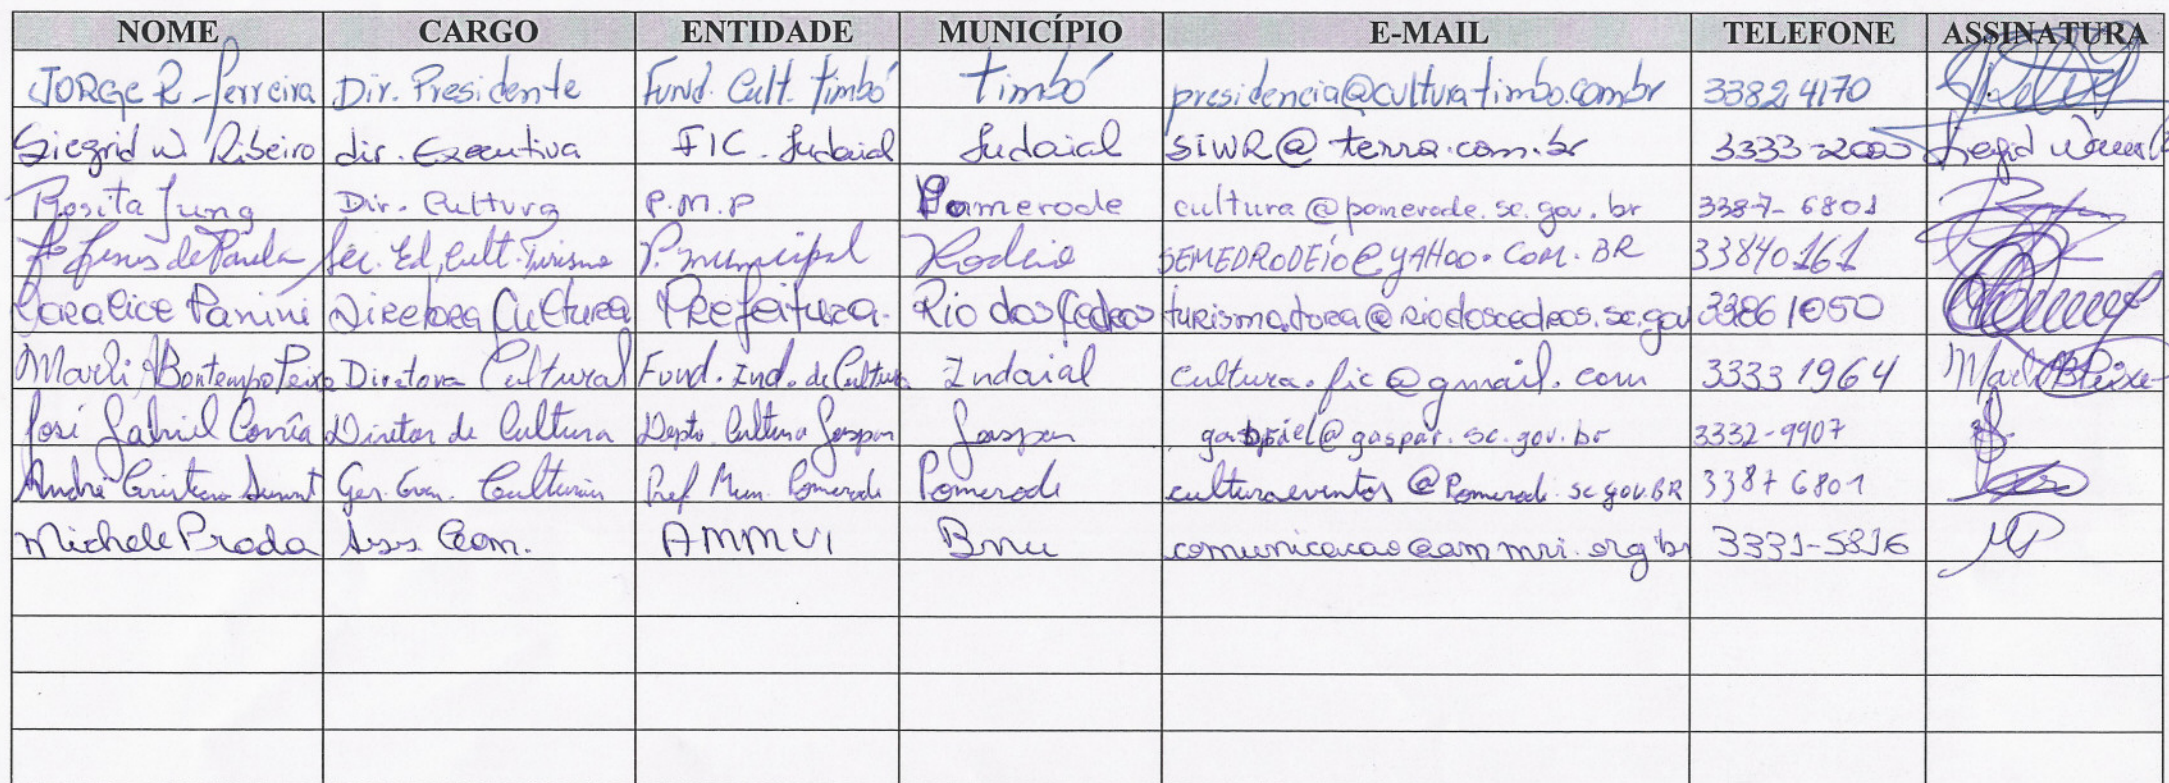 NOME CARGO ENTIDADE MUNICÍPIO E-MAIL TELEFONE ASSINATURA
JORGE R. Ferreira Dir. Presidente Fund. Cult. Timbó Timbó presidencia@culturatimbo.com.br 33824170
Siegrid W. Ribeiro dir. Executiva FIC. Indaial Indaial SiWR@terra.com.br 3333-2000
Rosita Jung Dir. Cultura P.M.P Pomerode cultura@pomerode.sc.gov.br 3387-6801
de Paula Sec. Ed, Cult. Turismo P. municipal Rodeio SEMEDRODEIO@YAHOO.COM.BR 33840161
Caralice Panini Diretora Cultura Prefeitura. Rio dos Cedros turismo.tora@riodoscedros.sc.gov 33861050
Marli Bontempo Peixe Diretora Cultural Fund. Ind. de Cultura Indaial cultura.fic@gmail.com 33331964
José Gabriel Corrêa Diretor de Cultura Depto. Cultura Gaspar Gaspar gabriel@gaspar.sc.gov.br 3332-9907
André Cristiano Ger. Even. Culturais Pref Mun. Pomerode Pomerode culturaeventos@Pomerode.sc.gov.BR 33876801
Michele Prada Ass. Com. AMMVI Bnu comunicacao@ammvi.org.br 3331-5816 MP